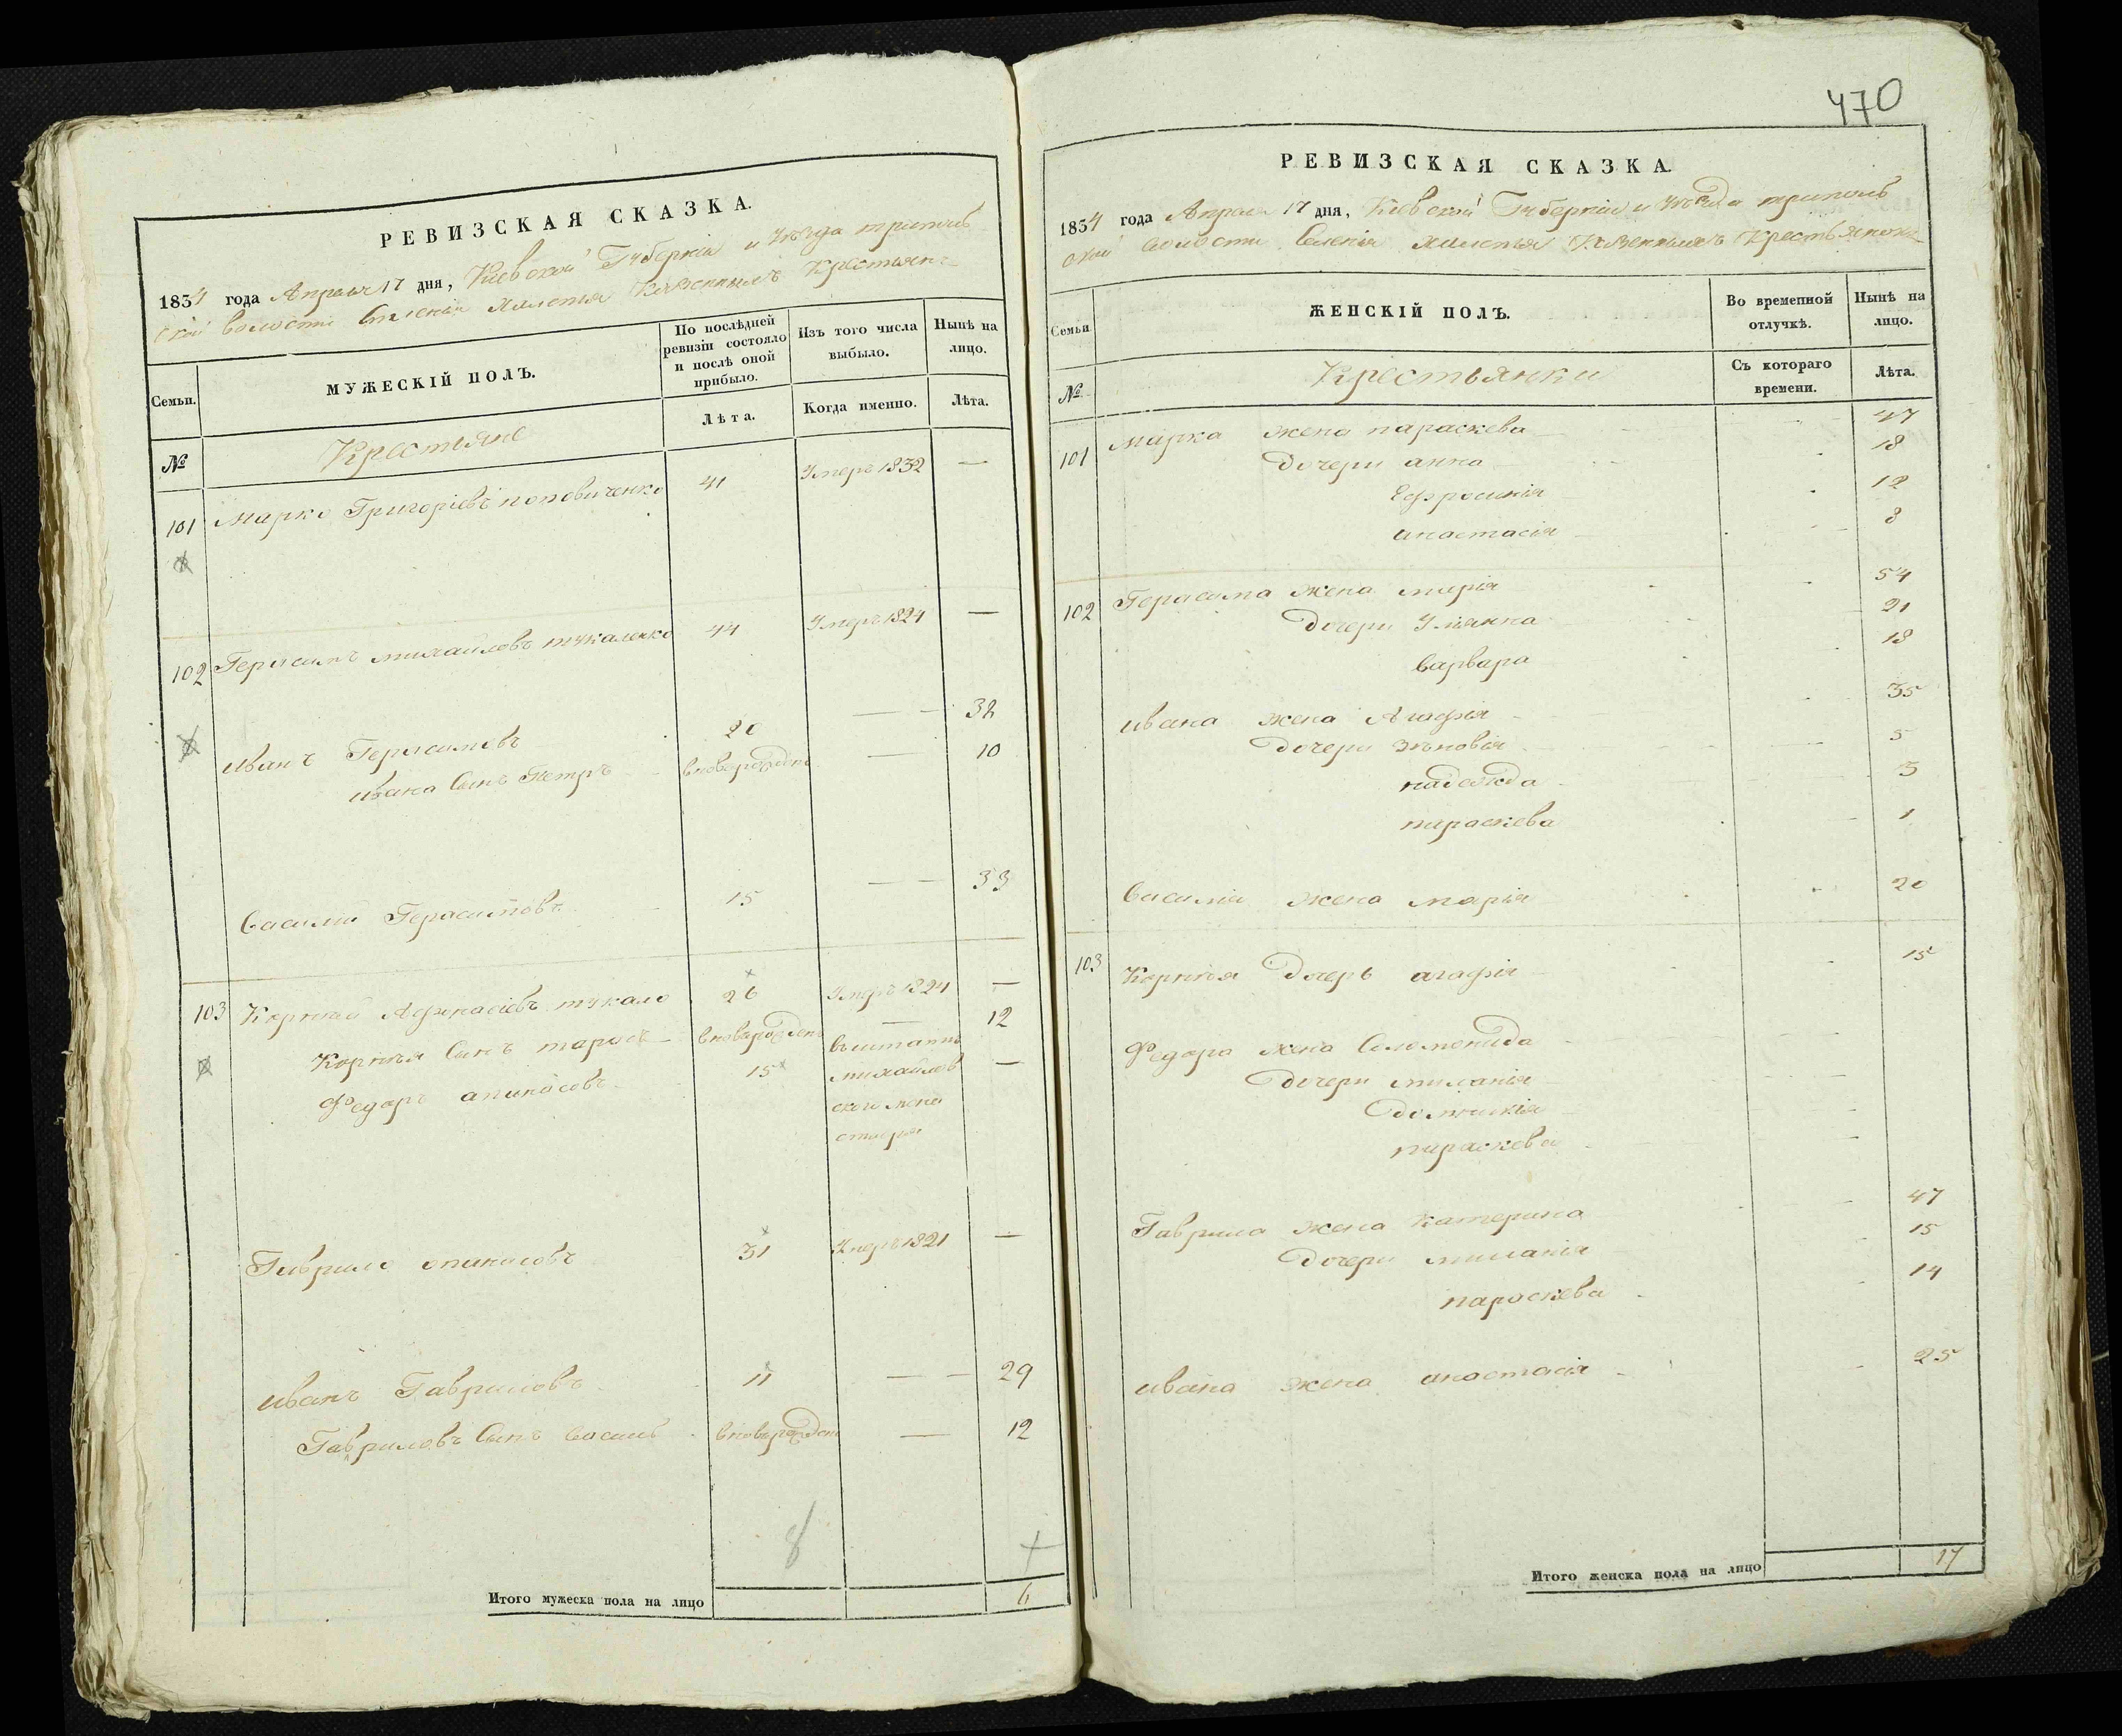 РЕВИЗСКАЯ СКАЗКА.
1834 года Апреля 17 дня, Киевской Губерніи и Уѣзда триполь
ской волости Селенія Халепья Казенныхъ Крестьянъ
Семьи.
МУЖЕСКІЙ ПОЛЪ.
По послѣдней ревизіи состояло и послѣ оной прибыло.
Изъ того числа выбыло.
Нынѣ на лицо.
№
Крестьяне
Лѣта.
Когда именно.
Лѣта.
101 Марко Григоріевъ поповиченко 41 Умеръ 1832 —
102 Герасимъ михайловъ тукаленко 44 Умеръ 1824 —
Иванъ Герасимовъ 20 — — 32
Ивана Сынъ Петръ вновьрожденъ — 10
Василий Герасимовъ 15 — — 33
103 Корней Афонасіевъ тукало 26 Умеръ 1824 —
Корнѣя Сынъ тарасъ вновьрожденъ — 12
Федоръ апанасовъ 15 въштатъ —
михайлов
ского мона
стыря
Гаврило опанасовъ 31 Умеръ 1821 —
Иванъ Гавриловъ 11 — — 29
Гавриловъ Сынъ Василь вновьрожденъ — 12
8
Итого мужеска пола на лицо 6
470
РЕВИЗСКАЯ СКАЗКА.
1834 года Апреля 17 дня, Киевской Губерніи и Уѣзда триполь
ской волости Селенія Халепья Казенныхъ Крестьянокъ
Семьи
ЖЕНСКІЙ ПОЛЪ.
Во временной отлучкѣ.
Нынѣ на лицо.
№
Крестьянки
Съ котораго времени.
Лѣта.
101 Марка жена параскева 47
дочери анна 18
Ефросинія 12
анастасія 8
102 Герасима жена марія 54
дочери Уліянна 21
варвара 18
Ивана жена Агафія 35
дочери зѣновія 5
надежда 3
параскева 1
Василія жена марія 20
103 Корнѣя дочерь агафія 15
Федора жена Соломонида
дочери миланія
домникія
параскева
Гаврила жена Катерина 47
дочери миланія 15
параскева 14
Ивана жена анастасія 25
Итого женска пола на лицо 17